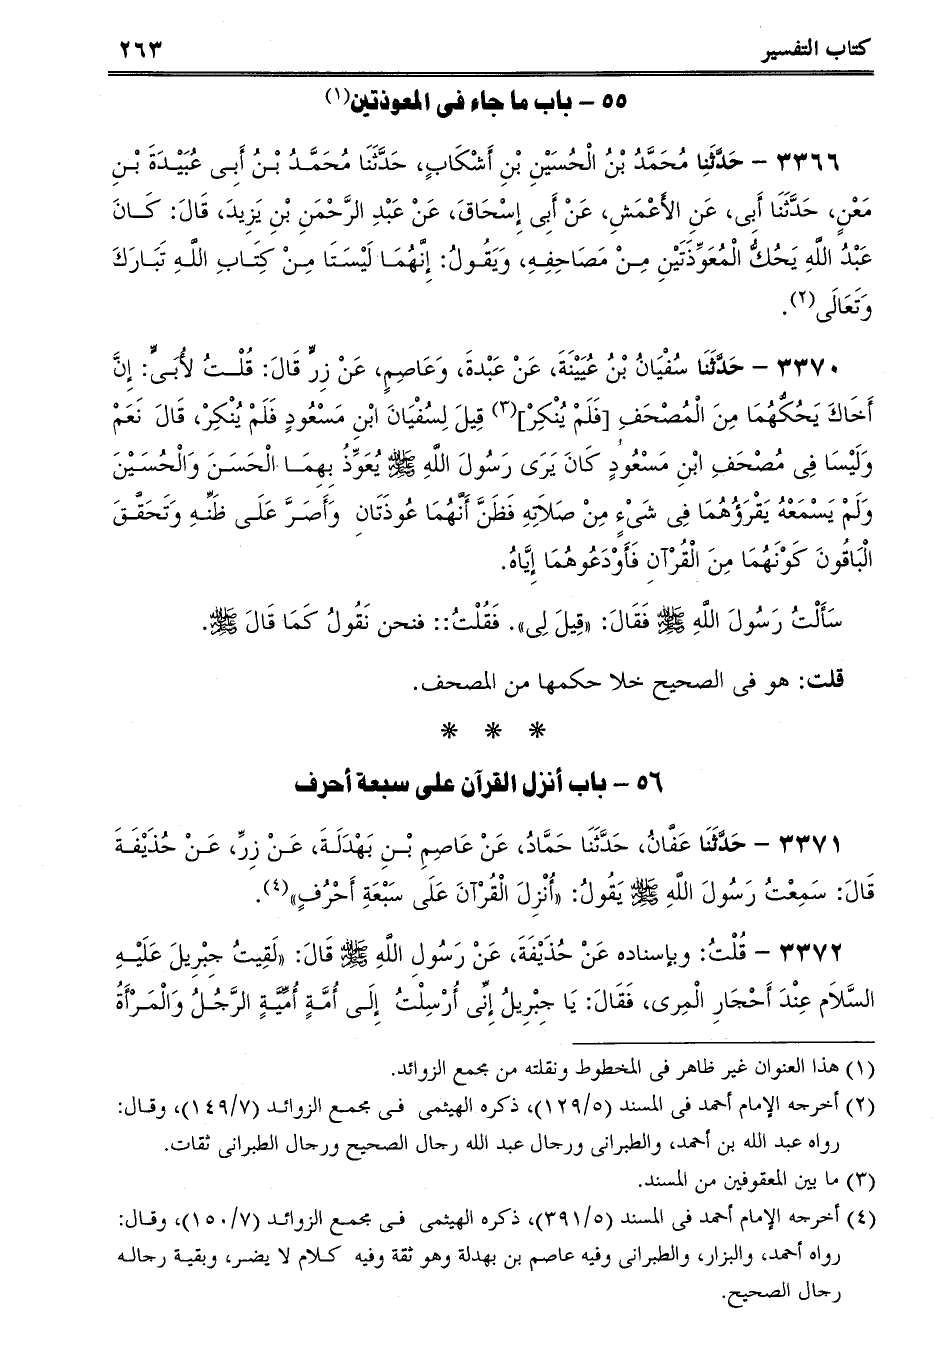 كتاب التفسير ٢٦٣
٥٥ – باب ما جاء فى المعوذتين(١)
٣٣٦٦ – حَدَّثَنِا مُحَمَّدُ بْنُ الْحُسَيْنِ بْنِ أَشْكَابٍ، حَدَّثَنَا مُحَمَّدُ بْنُ أَبِى عُبَيْدَةَ بْنِ
مَعْنٍ، حَدَّثَنَا أَبِى، عَنِ الأَعْمَشِ، عَنْ أَبِى إِسْحَاقَ، عَنْ عَبْدِ الرَّحْمَنِ بْنِ يَزِيدَ، قَالَ: كَانَ
عَبْدُ اللَّهِ يَحُكُّ الْمُعَوِّذَتَيْنِ مِنْ مَصَاحِفِهِ، وَيَقُولُ: إِنَّهُمَا لَيْسَتَا مِنْ كِتَابِ اللَّهِ تَبَارَكَ
وَتَعَالَى(٢).
٣٣٧٠ – حَدَّثَنَا سُفْيَانُ بْنُ عُيَيْنَةَ، عَنْ عَبْدةَ، وَعَاصِمٍ، عَنْ زِرٍّ قَالَ: قُلْتُ لأُبَىٍّ: إِنَّ
أَخَاكَ يَحُكُّهُمَا مِنَ الْمُصْحَفِ [فَلَمْ يُنْكِرْ](٣) قِيلَ لِسُفْيَانَ ابْنِ مَسْعُودٍ فَلَمْ يُنْكِرْ، قَالَ نَعَمْ
وَلَيْسَا فِى مُصْحَفِ ابْنِ مَسْعُودٍ كَانَ يَرَى رَسُولَ اللَّهِ ﷺ يُعَوِّذُ بِهِمَا الْحَسَنَ وَالْحُسَيْنَ
وَلَمْ يَسْمَعْهُ يَقْرَؤُهُمَا فِى شَىْءٍ مِنْ صَلاَتِهِ فَظَنَّ أَنَّهُمَا عُوذَتَانِ وَأَصَرَّ عَلَى ظَنِّهِ وَتَحَقَّقَ
الْبَاقُونَ كَوْنَهُمَا مِنَ الْقُرْآنِ فَأَوْدَعُوهُمَا إِيَّاهُ.
سَأَلْتُ رَسُولَ اللَّهِ ﷺ فَقَالَ: «قِيلَ لِى». فَقُلْتُ:: فنحن نَقُولُ كَمَا قَالَ ﷺ.
قلت: هو فى الصحيح خلا حكمها من المصحف.
* * *
٥٦ – باب أنزل القرآن على سبعة أحرف
٣٣٧١ – حَدَّثَنَا عَفَّانُ، حَدَّثَنَا حَمَّادُ، عَنْ عَاصِمِ بْنِ بَهْدَلَةَ، عَنْ زِرٍّ، عَنْ حُذَيْفَةَ
قَالَ: سَمِعْتُ رَسُولَ اللَّهِ ﷺ يَقُولُ: «أُنْزِلَ الْقُرْآنَ عَلَى سَبْعَةِ أَحْرُفٍ»(٤).
٣٣٧٢ – قُلْتُ: وبإسناده عَنْ حُذَيْفَةَ، عَنْ رَسُولِ اللَّهِ ﷺ قَالَ: «لَقِيتُ جِبْرِيلَ عَلَيْهِ
السَّلاَم عِنْدَ أَحْجَارِ الْمِرى، فَقَالَ: يَا جِبْرِيلُ إِنِّى أُرْسِلْتُ إِلَى أُمَّةٍ أُمِّيَّةٍ الرَّجُلُ وَالْمَرْأَةُ
(١) هذا العنوان غير ظاهر فى المخطوط ونقلته من مجمع الزوائد.
(٢) أخرجه الإمام أحمد فى المسند (١٢٩/٥)، ذكره الهيثمى فى مجمع الزوائد (١٤٩/٧)، وقال:
رواه عبد الله بن أحمد، والطبرانى ورجال عبد الله رجال الصحيح ورجال الطبرانى ثقات.
(٣) ما بين المعقوفين من المسند.
(٤) أخرجه الإمام أحمد فى المسند (٣٩١/٥)، ذكره الهيثمى فى مجمع الزوائد (١٥٠/٧)، وقال:
رواه أحمد، والبزار، والطبرانى وفيه عاصم بن بهدلة وهو ثقة وفيه كلام لا يضر، وبقية رجاله
رجال الصحيح.